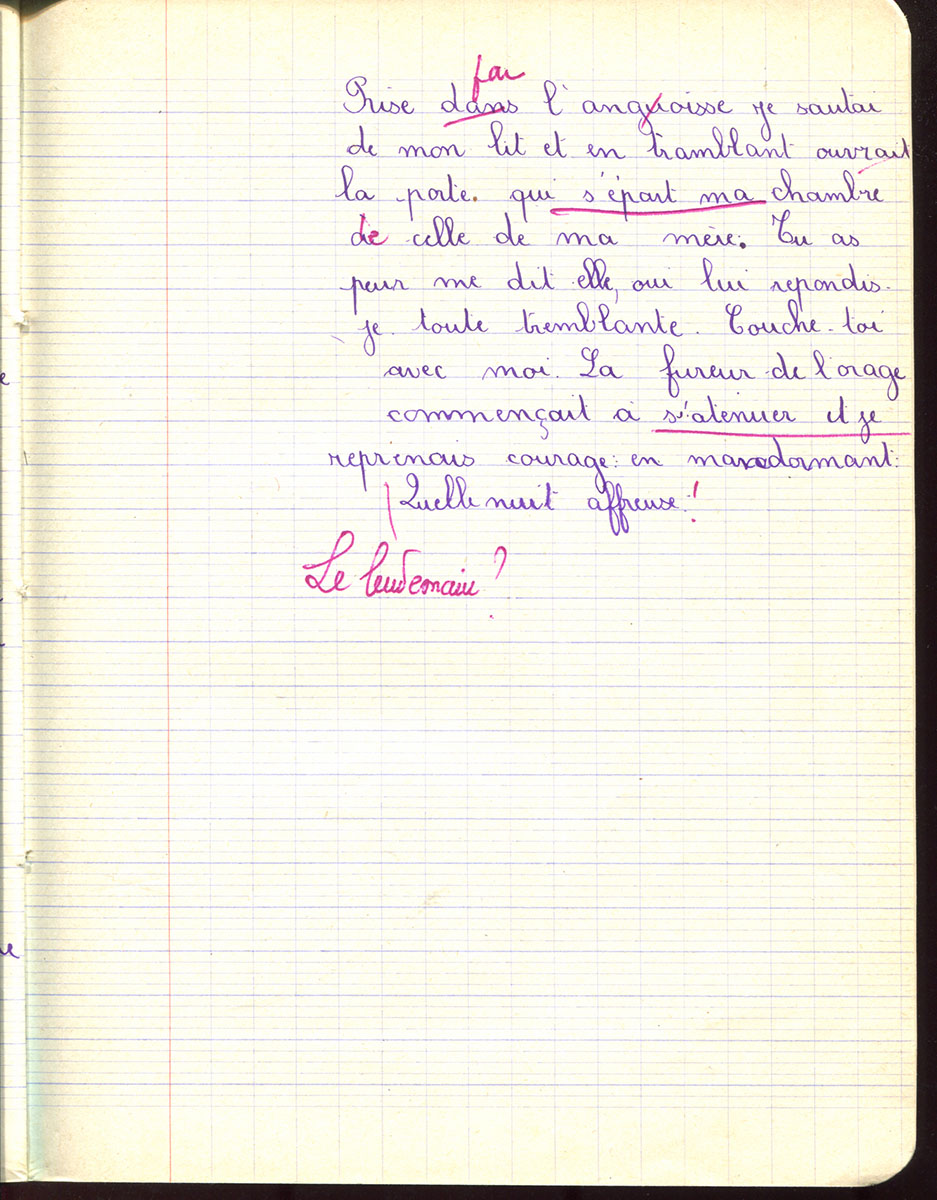 par
Prise dans l'anguoisse je sautai
de mon lit et en tramblant ouvrait
la porte. qui s'épart ma chambre
de celle de ma mère. Tu as
peur me dit elle, oui lui repondis-
je toute tremblante. Couche-toi
avec moi. La fureur de l'orage
commençait à s'atenuer et je
reprenais courage: en dormant.
Quelle nuit affreuse!
Le lendemain?